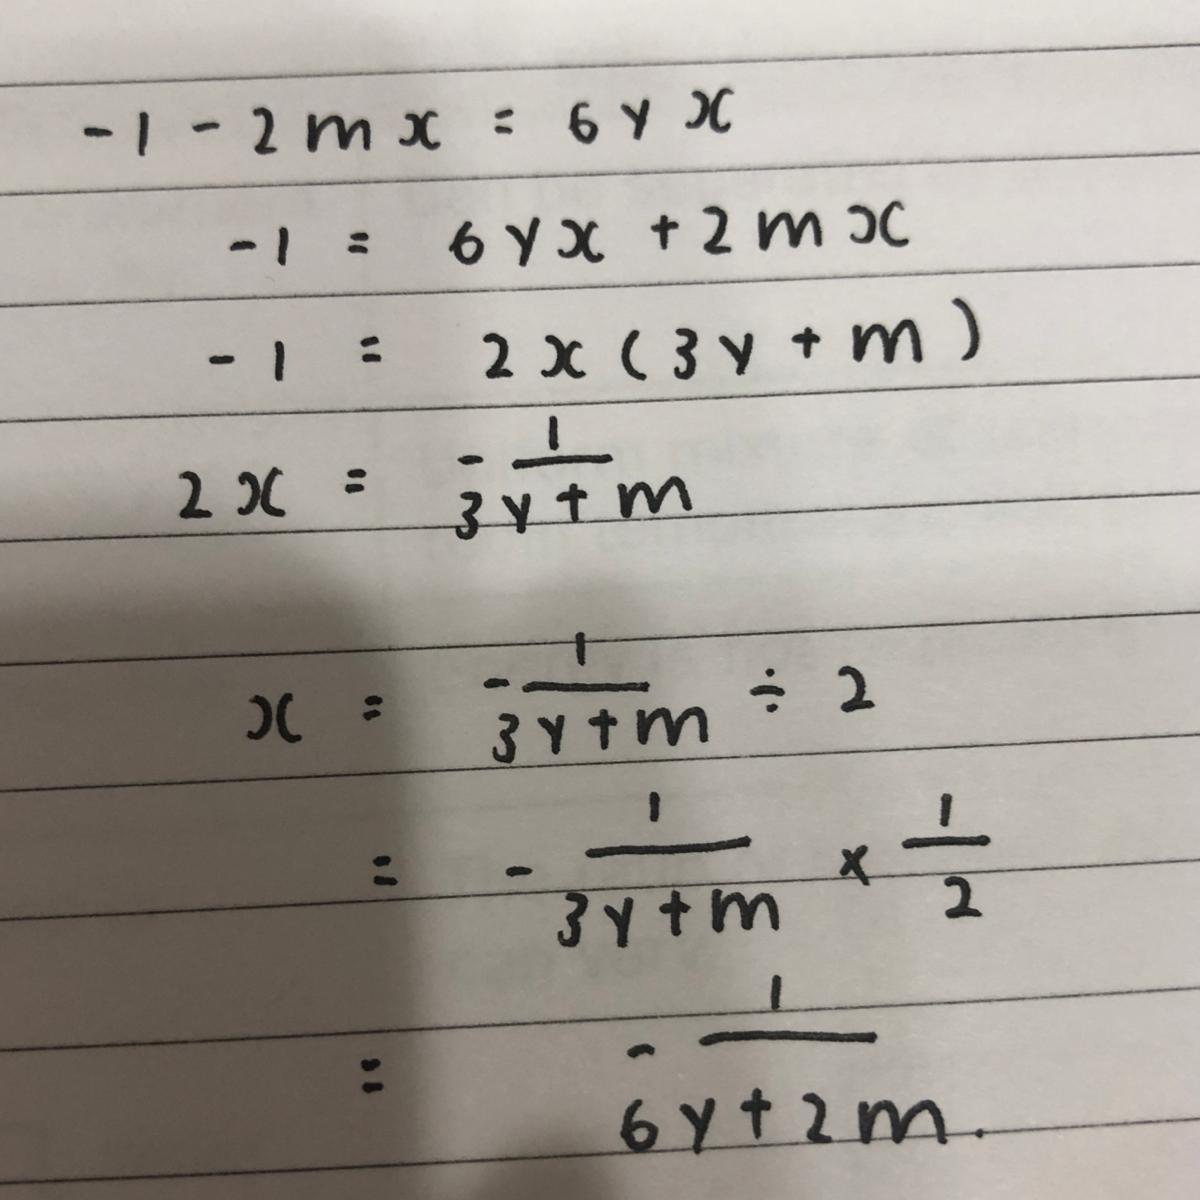 -1 - 2mx = 6yx
-1 = 6yx + 2mx
-1 = 2x(3y + m)
2x = -1/(3y + m)
x = -1/(3y + m) ÷ 2
= -1/(3y + m) × 1/2
= -1/(6y + 2m).